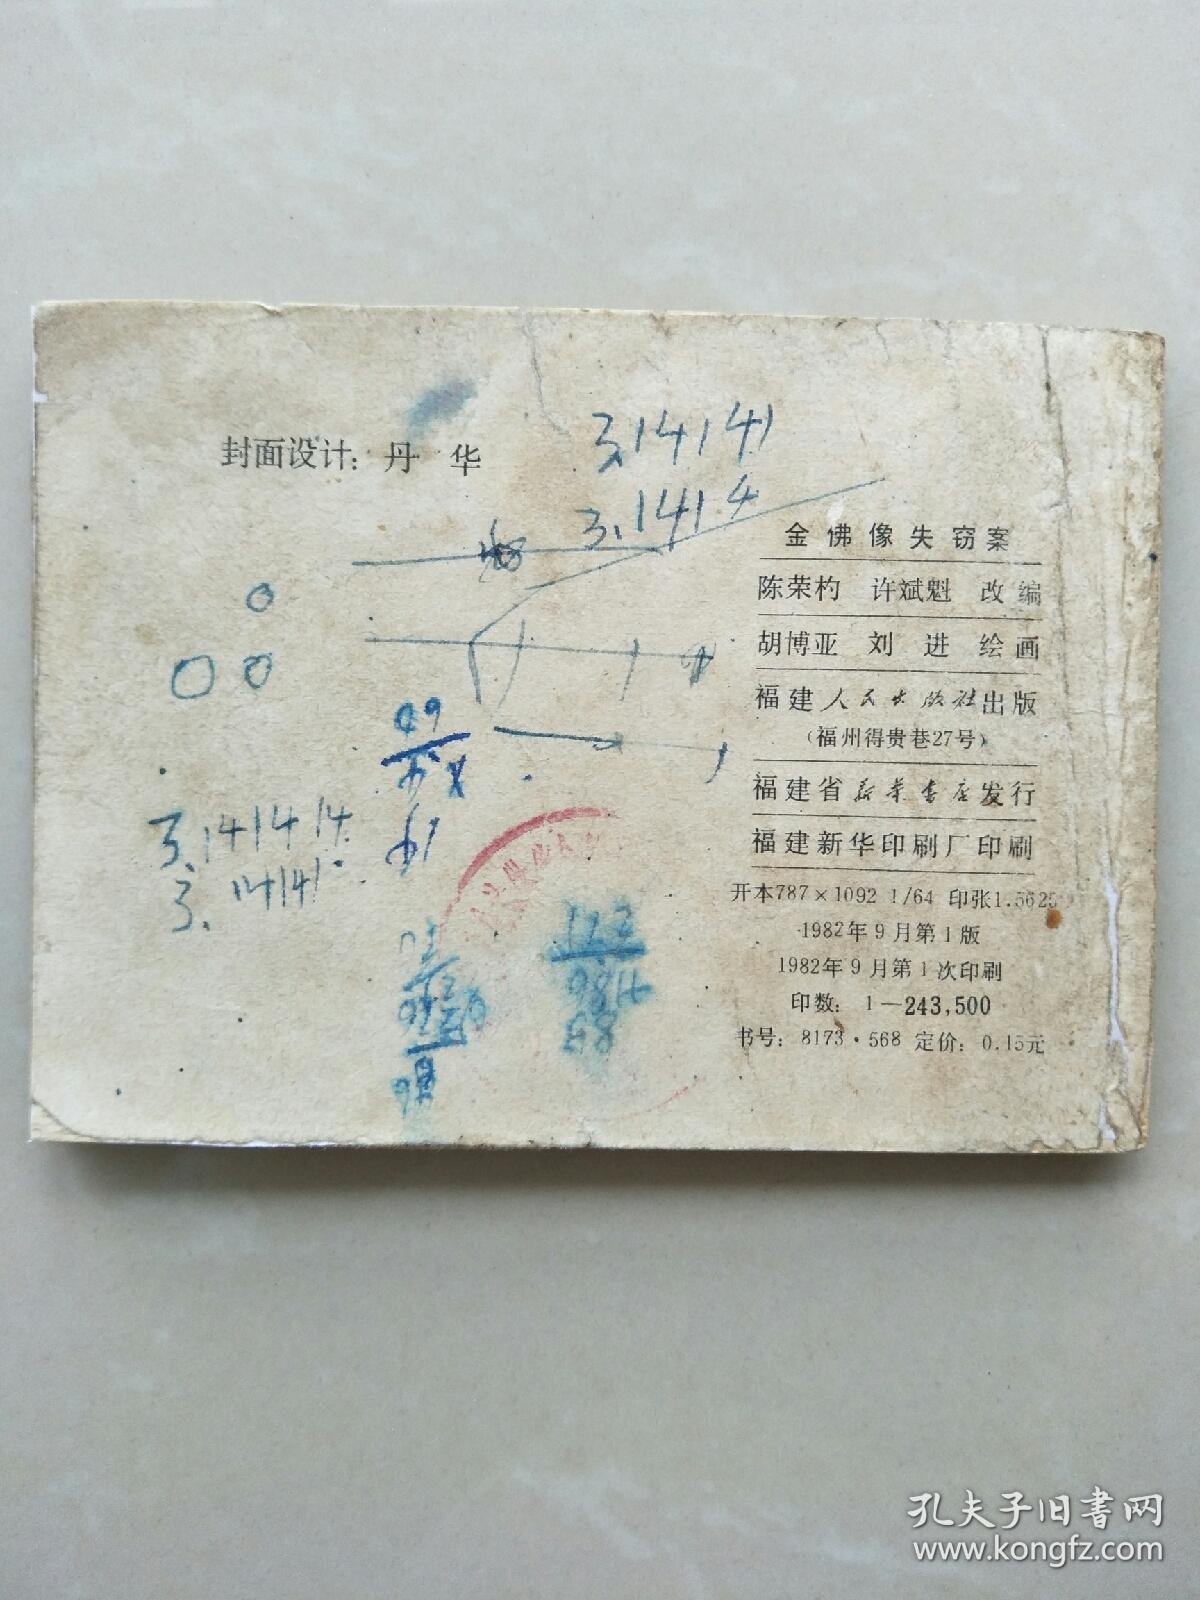 封面设计：丹 华
3.14141
3.1414
金佛像失窃案
陈荣杓 许斌魁 改编
胡博亚 刘进 绘画
福建人民出版社出版
（福州得贵巷27号）
福建省新华书店发行
福建新华印刷厂印刷
开本787×1092 1/64 印张1.5625
1982年9月第1版
1982年9月第1次印刷
印数：1—243,500
书号：8173·568 定价：0.15元
3.141414
3.14141
孔夫子旧书网
www.kongfz.com